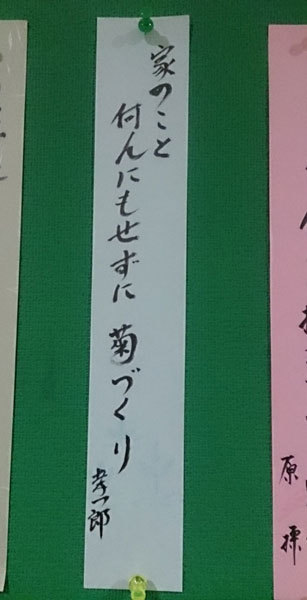 家のこと
何んにもせずに 菊づくり
孝一郎
原